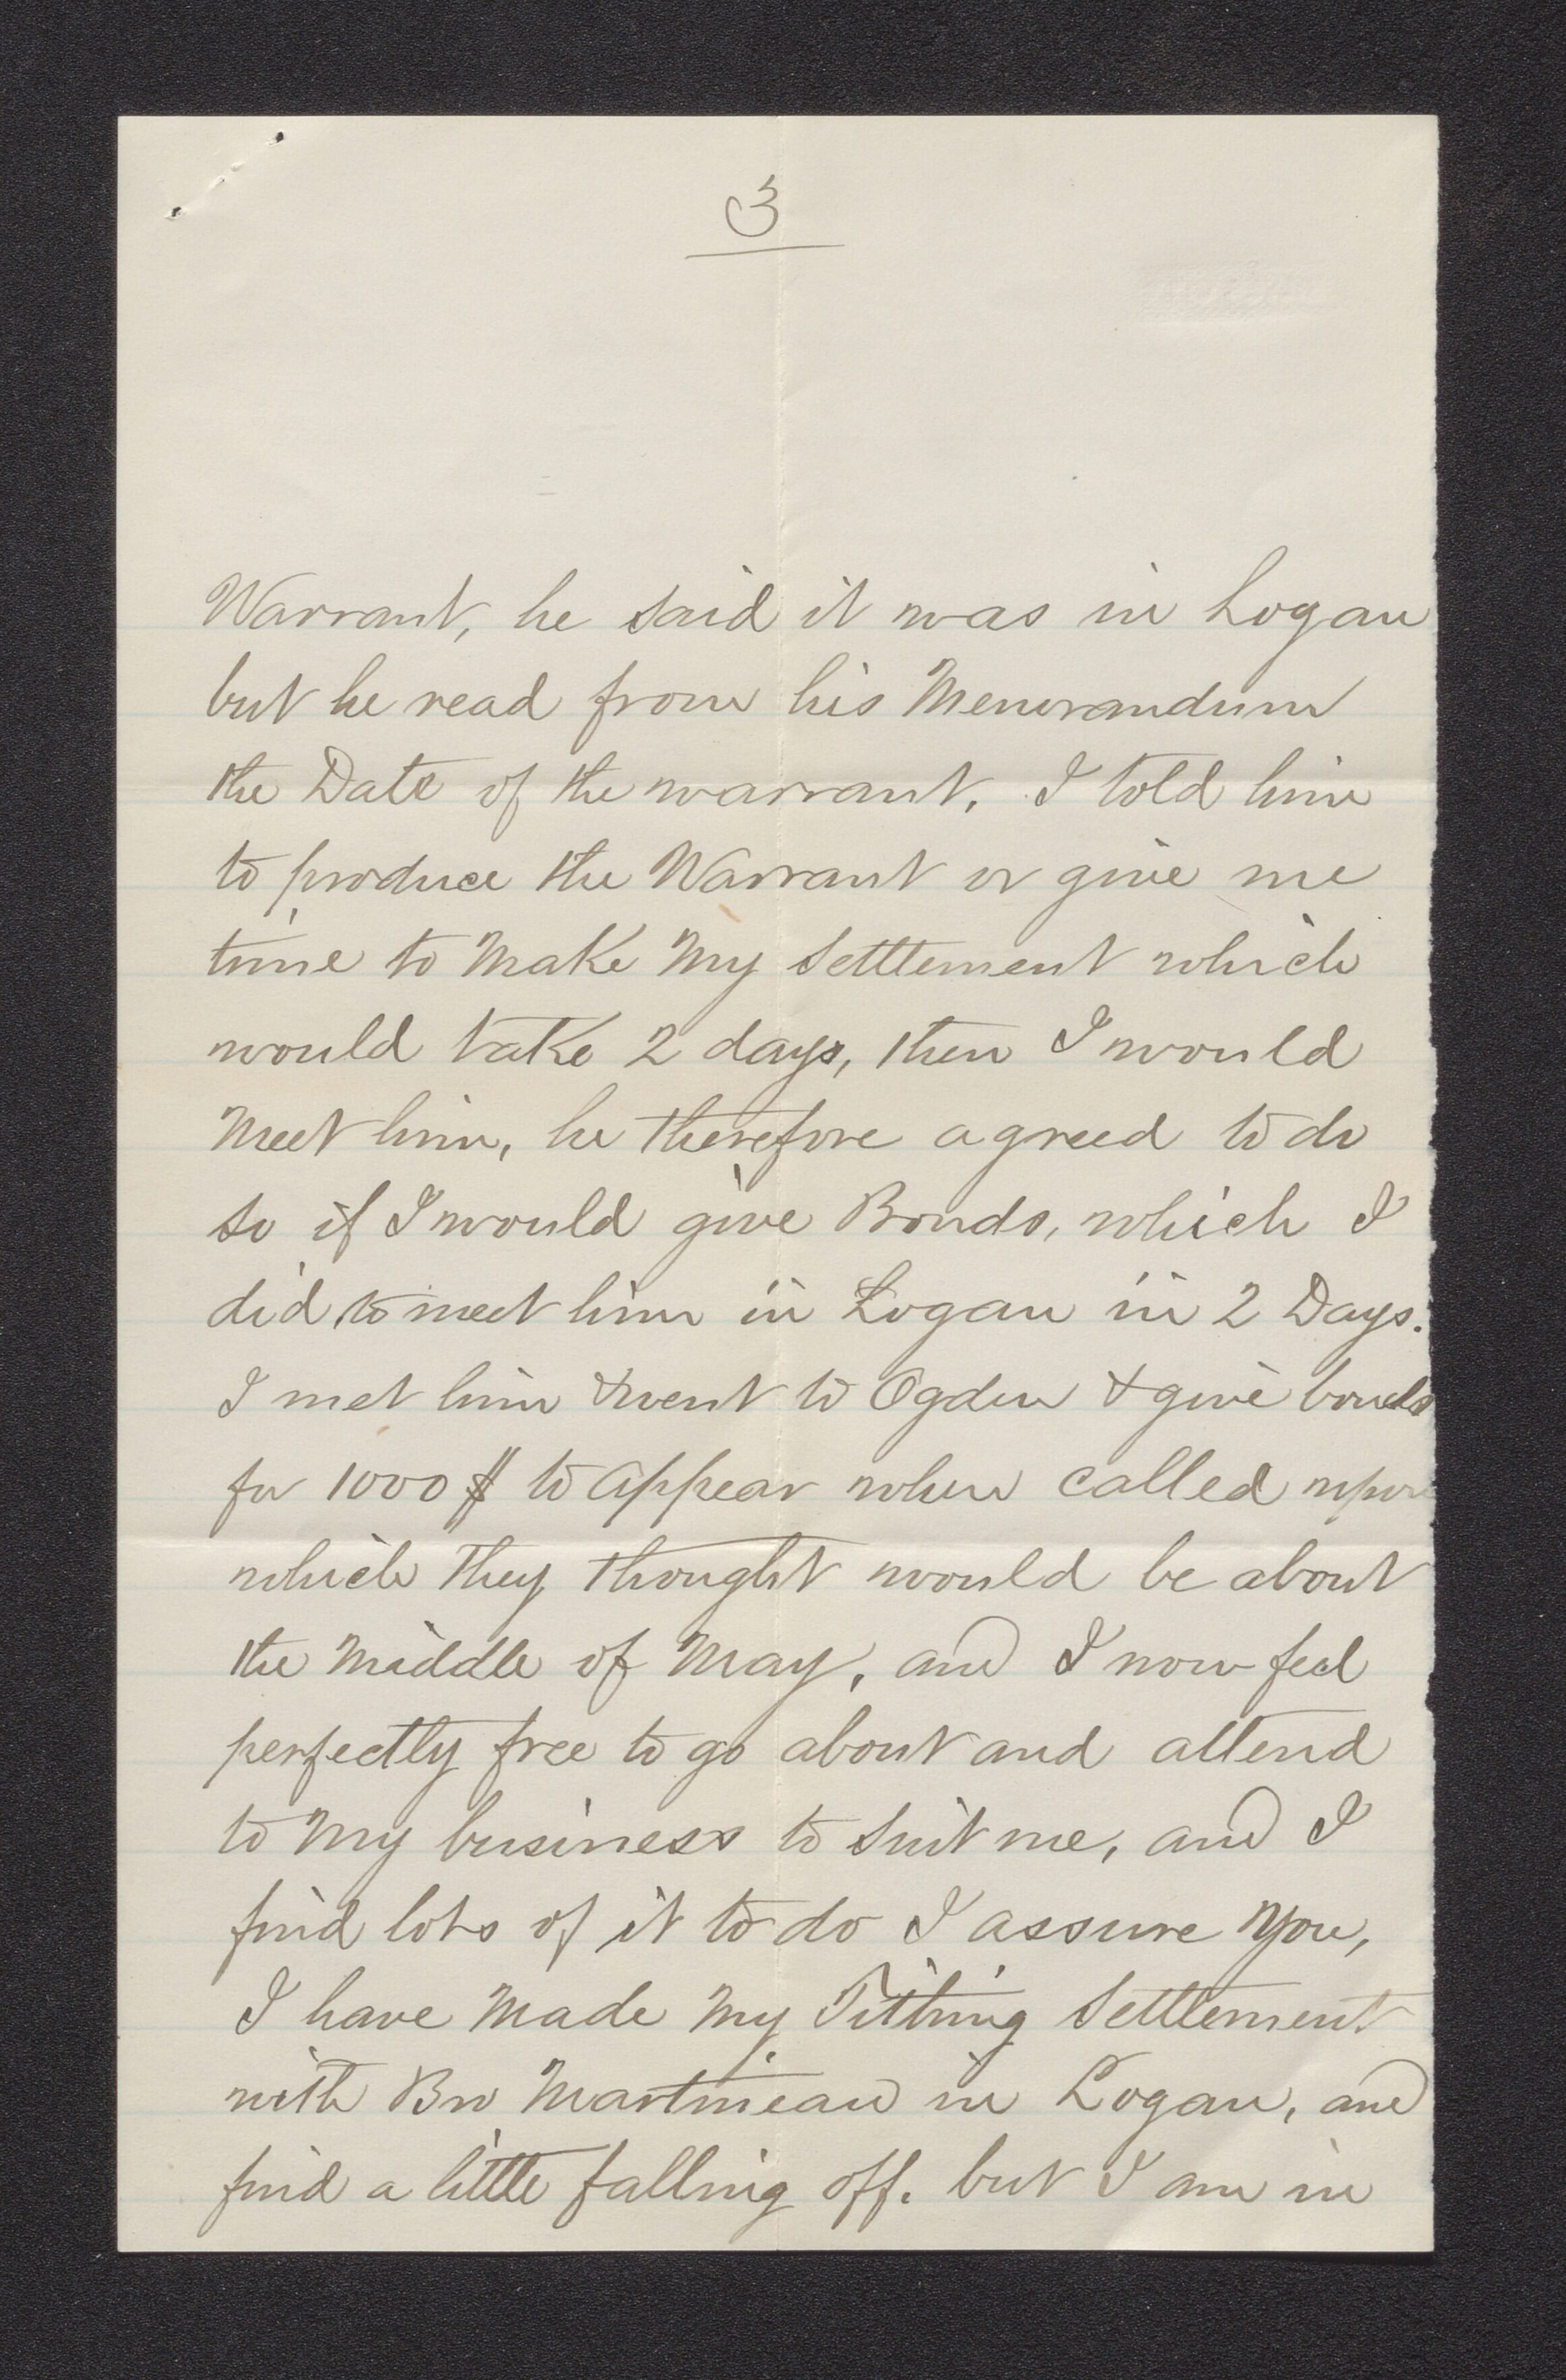 3
Warrant, he said it was in Logan
but he read from his Memorandum
the Date of the warrant. I told him
to produce the Warrant or give me
time to Make My Settlement which
would take 2 days, then I would
Meet him, he therefore agreed to do
so if I would give Bonds, which I
did to meet him in Logan in 2 Days.
I met him & went to Ogden & give bonds
for 1000 $ to appear when called upon
which they thought would be about
the Middle of May, and I now feel
perfectly free to go about and attend
to My business to suit me, and I
find lots of it to do I assure you,
I have Made My Tithing Settlement
with Bro Martineau in Logan, and
find a little falling off. but I am in